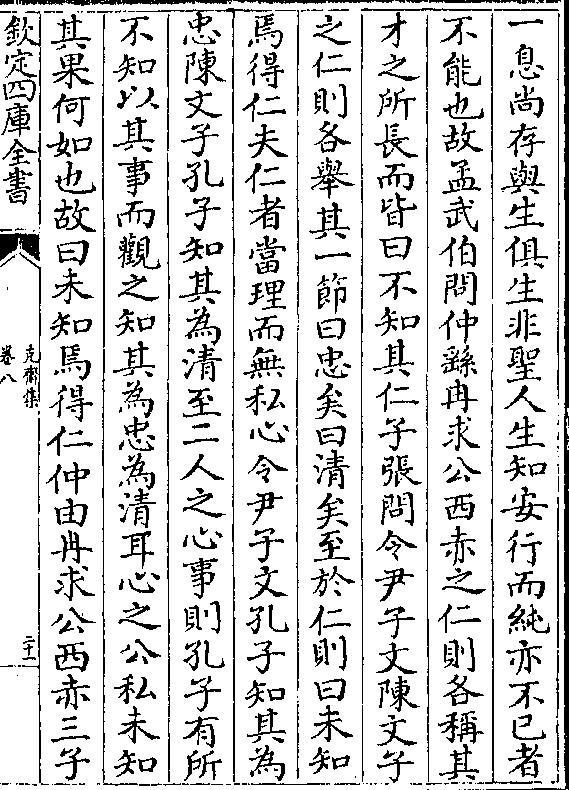 一息尚存與生俱生非聖人生知安行而純亦不已者
不能也故孟武伯問仲繇冉求公西赤之仁則各稱其
才之所長而皆曰不知其仁子張問令尹子文陳文子
之仁則各舉其一節曰忠矣曰清矣至於仁則曰未知
焉得仁夫仁者當理而無私心令尹子文孔子知其為
忠陳文子孔子知其為清至二人之心事則孔子有所
不知以其事而觀之知其為忠為清耳心之公私未知
其果何如也故曰未知焉得仁仲由冉求公西赤三子
欽定四庫全書
克齋集
卷八
二十一